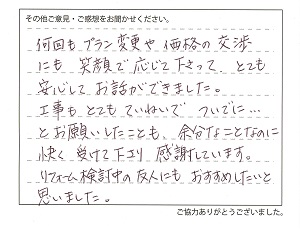 その他ご意見・ご感想をお聞かせください。
何回もプラン変更や価格の交渉
にも 笑顔で応じて下さって、とても
安心してお話ができました。
工事もとてもていねいで ついでに…
とお願いしたことも、余分なことなのに
快く受けて下さり 感謝しています。
リフォーム検討中の友人にもおすすめしたいと
思いました。
ご協力ありがとうございました。